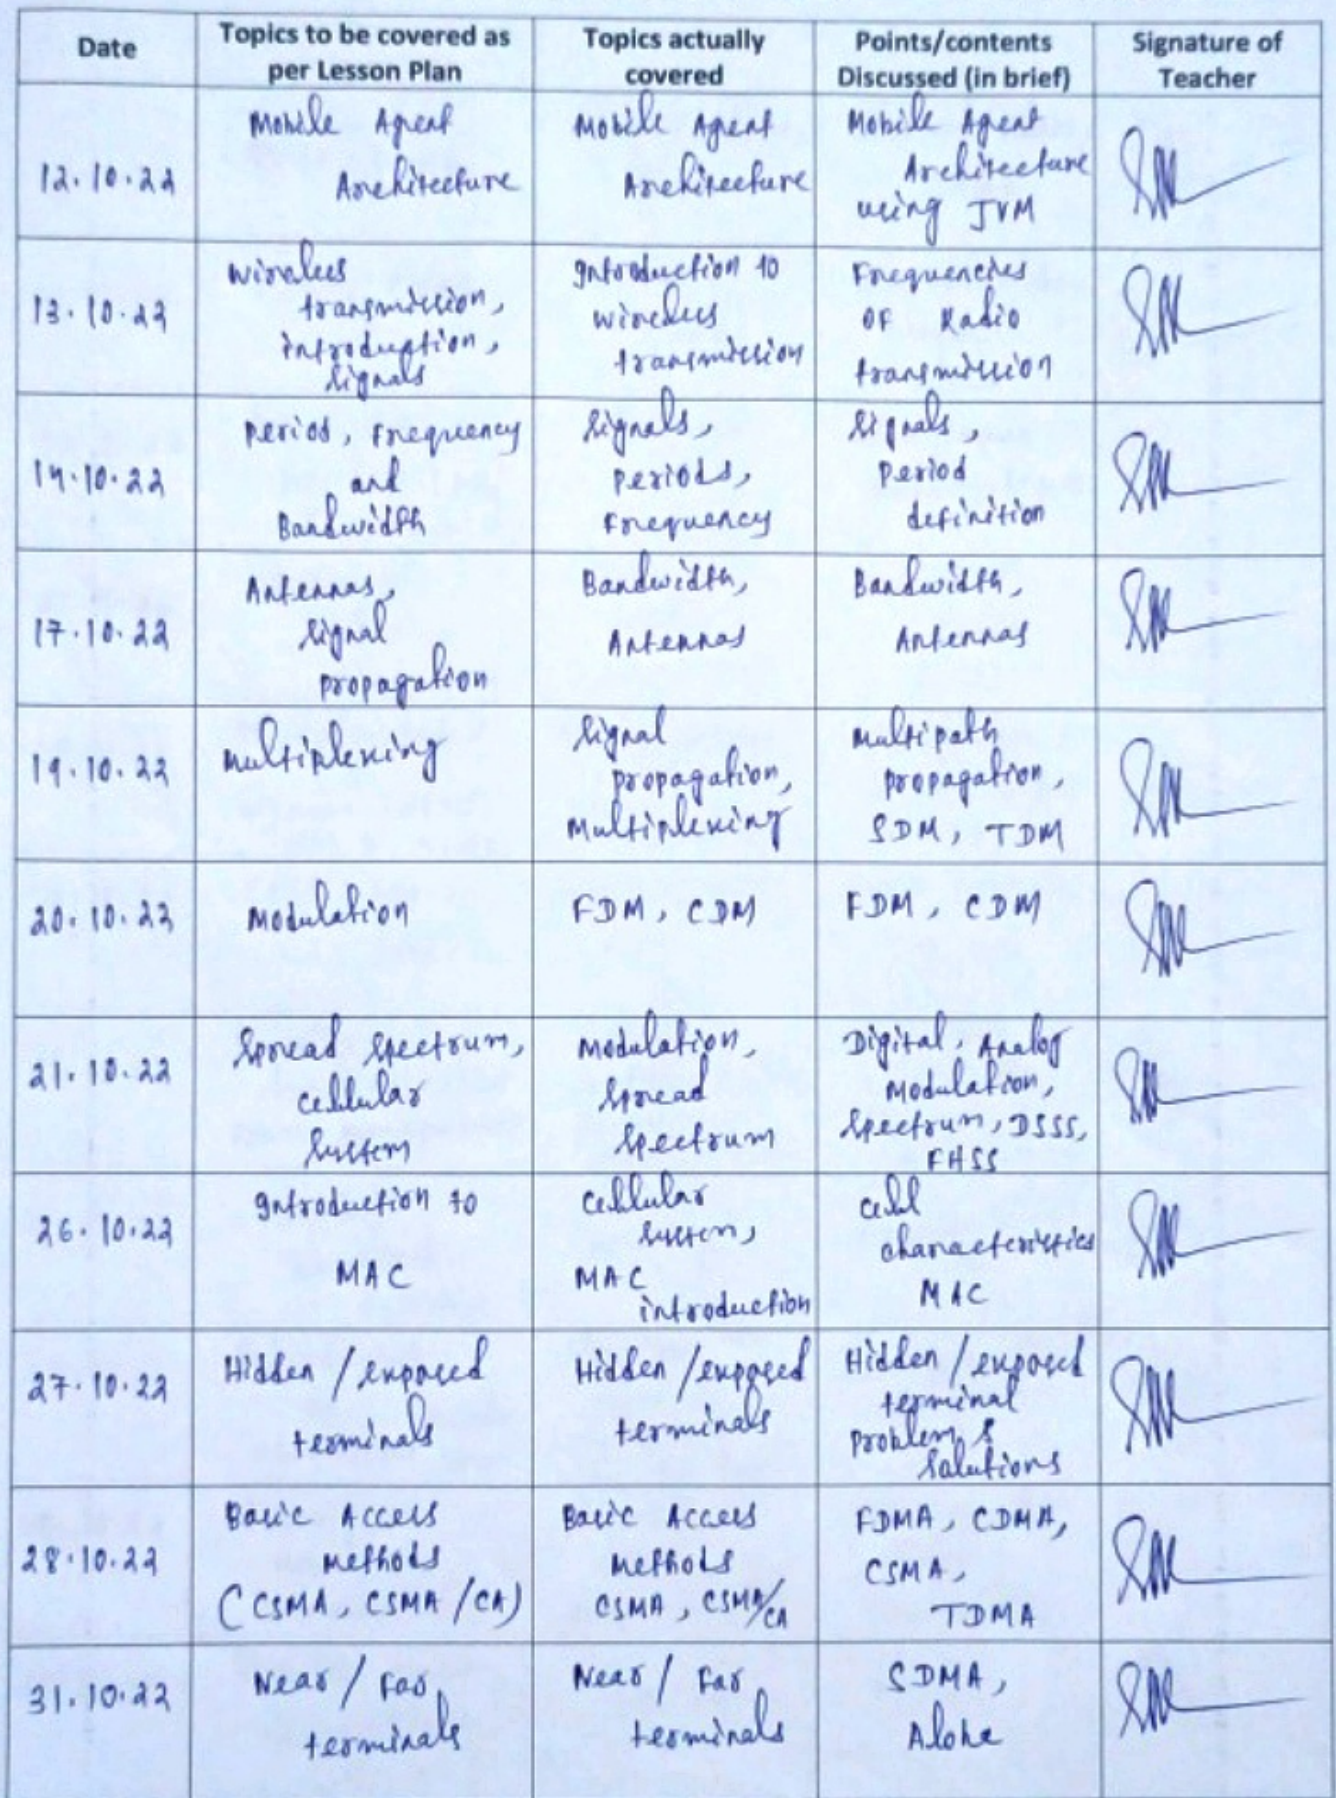 Date
Topics to be covered as
per Lesson Plan
Topics actually
covered
Points/contents
Discussed (in brief)
Signature of
Teacher
12.10.22
Mobile Agent
Architecture
Mobile Agent
Architecture
Mobile Agent
Architecture
using JVM
13.10.22
Wireless
transmission,
introduction,
signals
Introduction to
wireless
transmission
Frequencies
of Radio
transmission
14.10.22
Period, Frequency
and
Bandwidth
Signals,
Periods,
Frequency
Signals,
Period
definition
17.10.22
Antennas,
Signal
propagation
Bandwidth,
Antennas
Bandwidth,
Antennas
19.10.22
Multiplexing
Signal
propagation,
Multiplexing
Multipath
propagation,
SDM, TDM
20.10.22
Modulation
FDM, CDM
FDM, CDM
21.10.22
Spread Spectrum,
Cellular
System
Modulation,
Spread
Spectrum
Digital, Analog
Modulation,
Spectrum, DSSS,
FHSS
26.10.22
Introduction to
MAC
Cellular
System,
MAC
introduction
Cell
characteristics
MAC
27.10.22
Hidden / exposed
terminals
Hidden / exposed
terminals
Hidden / exposed
terminal
Problem &
Solutions
28.10.22
Basic Access
methods
(CSMA, CSMA / CA)
Basic Access
methods
CSMA, CSMA/CA
FDMA, CDMA,
CSMA,
TDMA
31.10.22
Near / Far
terminals
Near / Far
terminals
SDMA,
Aloha